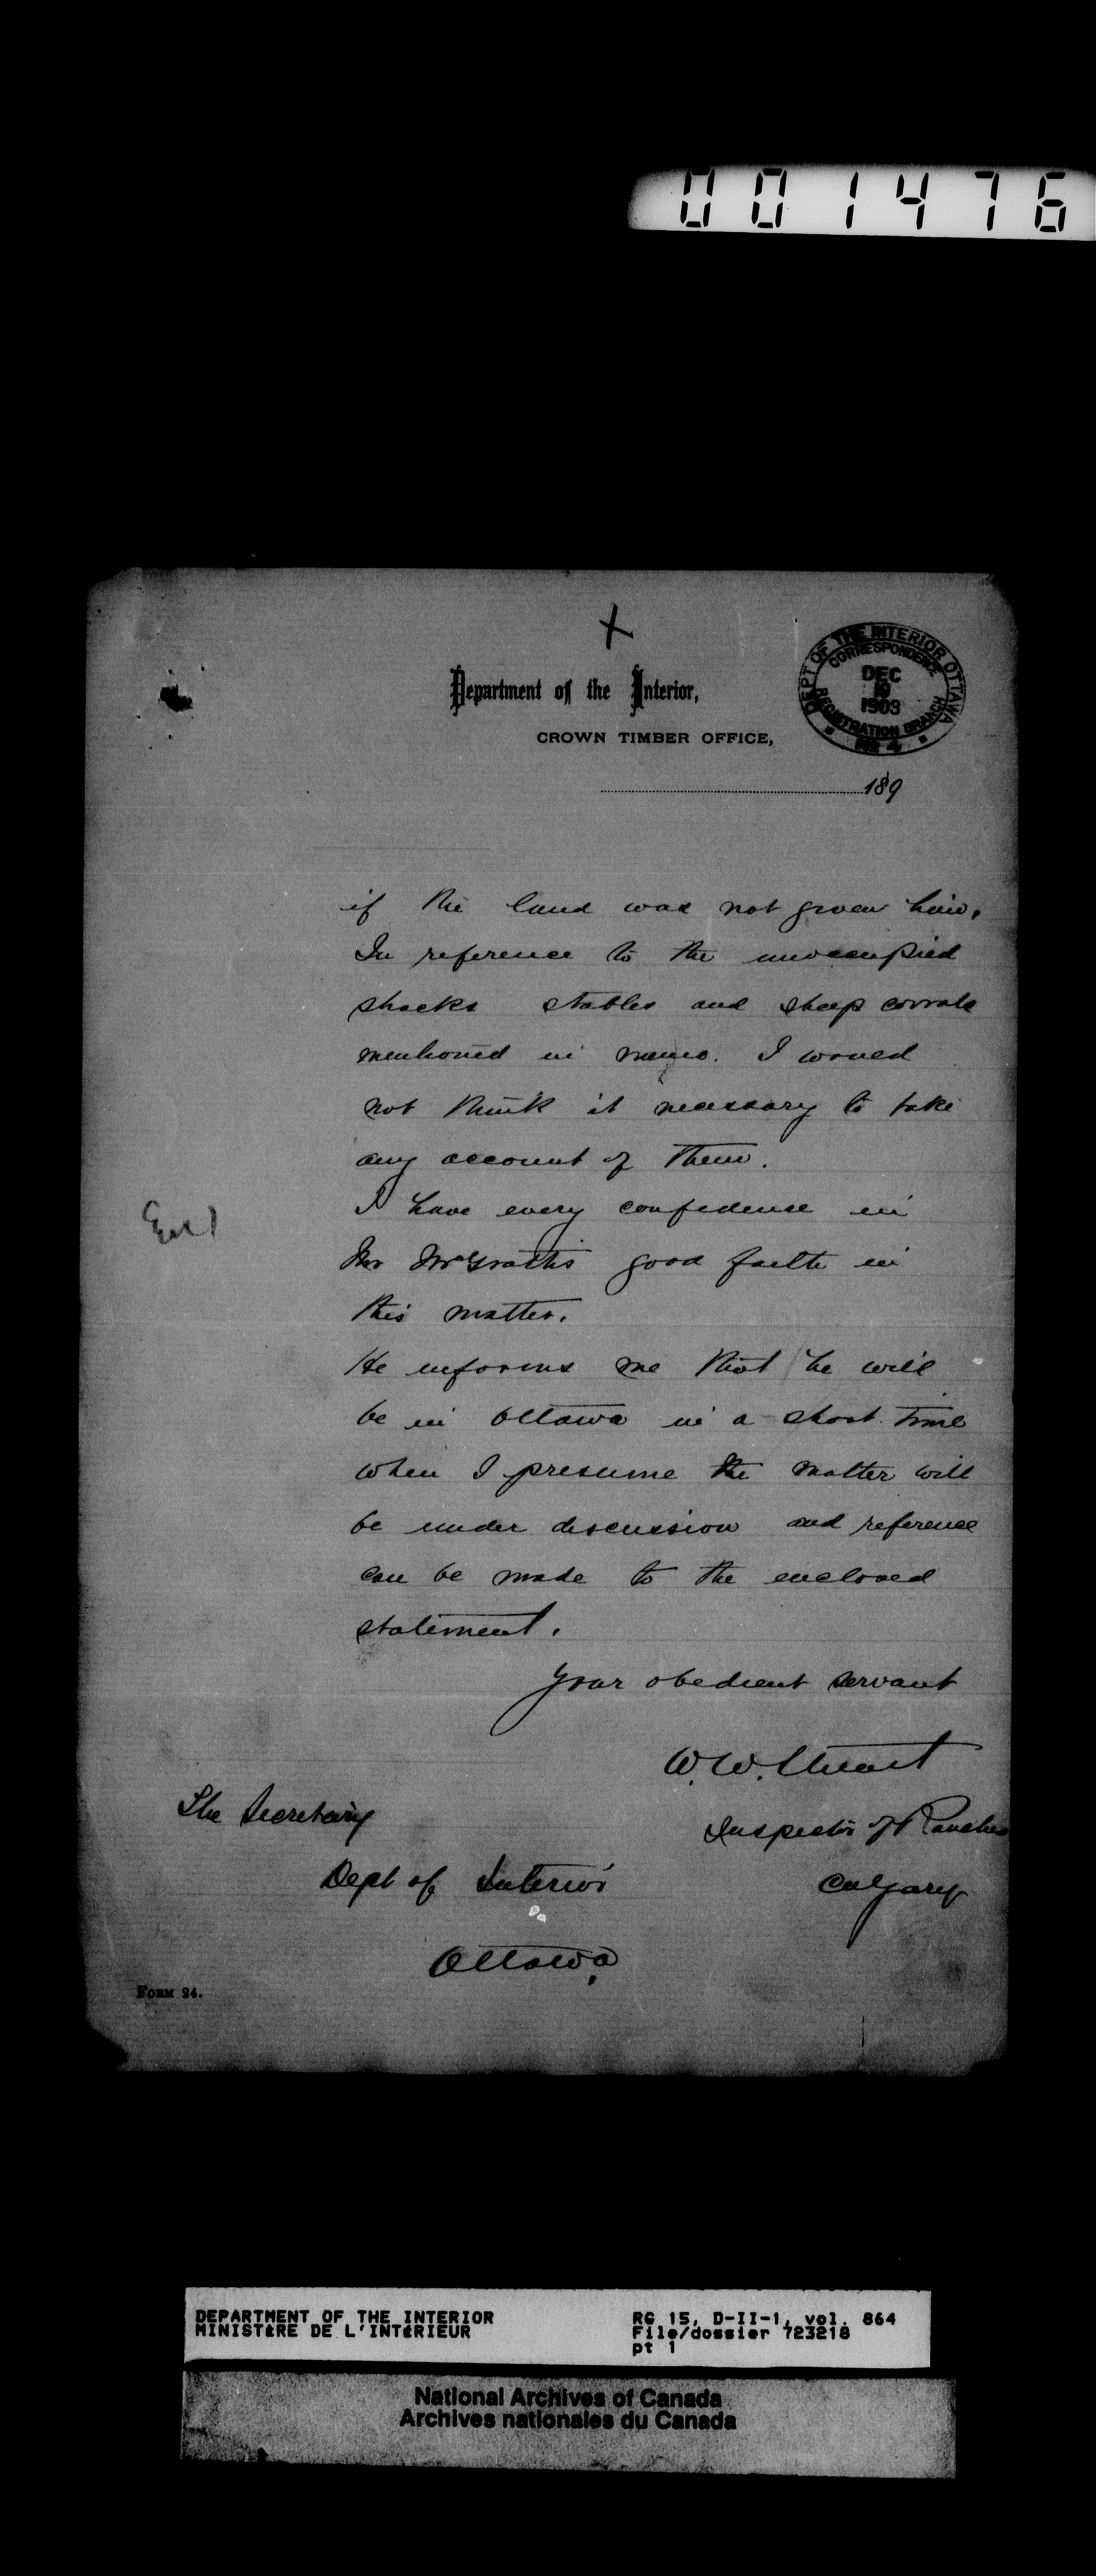 001476
X
Department of the Interior,
CROWN TIMBER OFFICE,
DEPT OF THE INTERIOR OTTAWA
CORRESPONDENCE
DEC
19
1903
REGISTRATION BRANCH
No 4
189
if the land was not given him.
In reference to the unoccupied
shacks stables and sheep corrals
mentioned in memo. I would
not think it necessary to take
any account of them.
I have every confidense in
Mr McGrath's good faith in
this matter.
He informs me that he will
be in Ottawa in a short time
when I presume the matter will
be under discussion and reference
can be made to the enclosed
statement.
Your obedient servant
W. W. Stuart
The Secretary
Inspector of Ranches
Dept of Interior
Calgary
Ottawa
FORM 24.
DEPARTMENT OF THE INTERIOR
MINISTÈRE DE L'INTÉRIEUR
RG 15, D-II-1, vol. 864
File/dossier 723218
pt 1
National Archives of Canada
Archives nationales du Canada